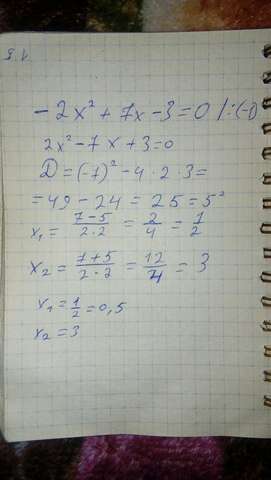 -2x² + 7x - 3 = 0 |:(-1)
2x² - 7x + 3 = 0
D = (-7)² - 4 · 2 · 3 =
= 49 - 24 = 25 = 5²
x₁ = (7-5)/(2·2) = 2/4 = 1/2
x₂ = (7+5)/(2·2) = 12/4 = 3
x₁ = 1/2 = 0,5
x₂ = 3